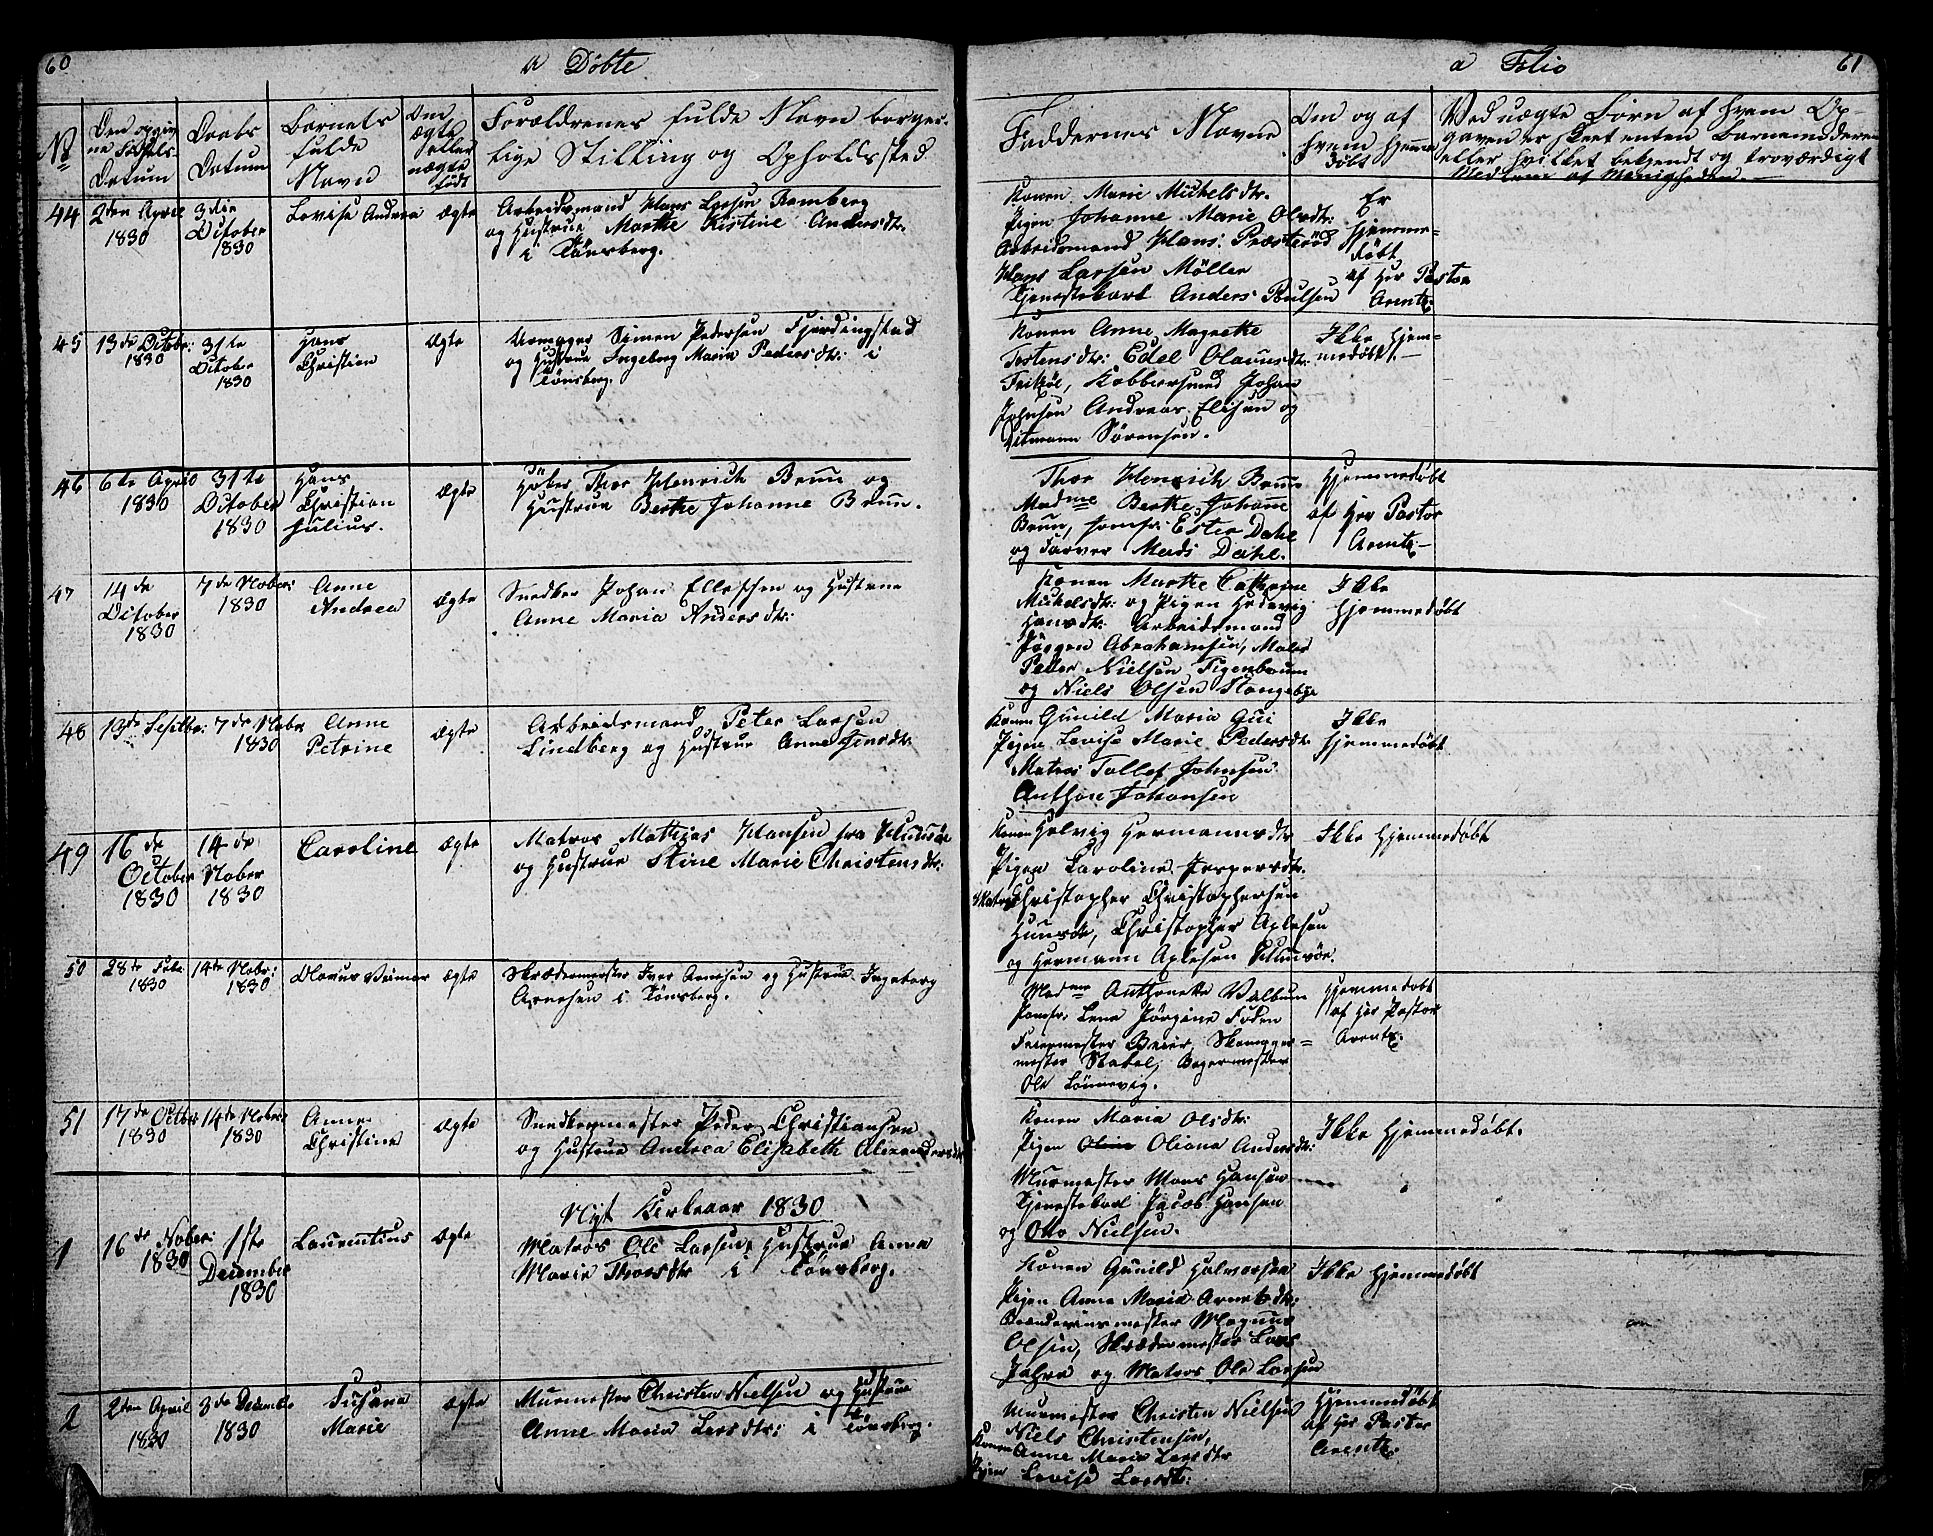 60
a Döbte
No
Den opgiv
ne Födsels-
Datum
Daabs
Datum
Barnets
fulde
Navn
Om
ægte
eller
uægte
födt
Forældrenes fulde Navn borger-
lige Stilling og Opholdssted
44
2den April
1830
3die
October
1830
Lovise Andrea
Ægte
Arbeidsmand Hans Larsen Ramberg
og Hustrue Marthe Kistine Andersdtr.
i Tönsberg.
45
13de Octobr:
1830
31te
October
1830
Hans
Christian
Ægte
Urmager Simen Pedersen Fjerdingstad
og Hustrue Ingeborg Maria Pedersdtr: i
Tönsberg.
46
6te April
1830
31te
October
1830
Hans
Christian
Julius.
Ægte
Thor Henrich Bruun og
Hustrue Berthe Johanne Bruun.
47
14de
October
1830
7de Nober:
1830
Anne
Andrea
Ægte
Snedker Johan Ellefsen og Hustrue
Anne Maria Andersdtr:
48
13de Septbr:
7de Nobr
1830
Anne
Petrine
Ægte
Arbeidsmand Peter Larsen
Lindberg og Hustrue Anne Jensdtr.
49
16de
October
1830
14de
Nober
1830
Caroline
Ægte
Matros Mathias Hansen fra Huusöe
og Hustrue Stine Marie Christensdtr:
50
28de Febr.
1830
14de Nobr:
1830
Olavus Veimar
Ægte
Skrædermester Iver Arnesen og Hustrue Ingeborg
Arnesen i Tönsberg.
51
17de Octbr
1830
14de Nobr
1830
Anne
Christine
Ægte
Snedkermester Peder Christiansen
og Hustrue Andrea Elisabeth Alexandersdtr
Nyt Kirkeaar 1830
1
16de Nober:
1830
1ste
December
1830
Laurentius
Ægte
Matros Ole Larsen, Hustrue Anna
Marie Thorsdtr i Tönsberg.
2
2den April
1830
3de Decembr
1830
Susana
Marie
Ægte
Murmester Christen Nielsen og Hustrue
Anne Maria Larsdtr: i Tönsberg.
a Folio
61
Faddernes Navne
Om og af
hvem hjemme
döbt
Ved uægte Börn af hvem Op-
gaven er skeet enten Barnemoderen
eller hvilket bekjendt og troværdigt
Medlem af Menigheden.
Konen Marie Michelsdtr.
Pigen Johanne Marie Olsdtr:
Arbeidsmand Hans Præsteröd
Hans Larsen Möller
Tjenestekarl Anders Poulsen
Er
hjemme-
döbt
af Her Pastor
Arentz.
Konen Anne Magrethe
Tostensdtr: Edel Olaussdtr.
Kobbersmed Johan
Johnsen Andreas Elisen og
Ditmann Sörensen.
Ikke Hjem-
medöbt.
Thor Henrich Bruun
Madme Berthe Johanne
Bruun, Jomfr: Ester Dahl
og Farver Mads Dahl.
Hjemmedöbt
af Her Pastor
Arentz
Konen Marthe Cathrine
Michelsdtr: og Pigen Hedevig
Hansdtr: Arbeidsmand
Jörgen Abrahamsen, Maler
Peder Nielsen Figenbaum
og Niels Olsen Stangebye
Ikke
Hjemmedöbt
Konen Gunild Maria Gui
Pigen Lovise Marie Pedersdtr.
Matros Tollef Johnsen
Anthon Johansen
Ikke
Hjemmedöbt
Konen Helvig Hermannsdtr
Pigen Caroline Jespersdtr.
Matros Christopher Christophersen
Huusöe, Christopher Axlesen
og Hermann Axlesen Huusöe.
Ikke Hjemmedöbt
Madme Anthonette Valbum
Jomfr: Lena Jörgine Foden
Feiermester Beier, Skomager=
mester Stabel, Bagermester
Ole Lönnevig.
Hjemmedöbt
af Her Pastor
Arentz.
Konen Maria Olsdtr:
Pigen Oliane Andersdtr:
Murmester Mons Hansen
Tjenestekarl Jacob Hansen
og Otto Nielsen.
Ikke Hjemmedöbt.
Konen Gunild Halvorsen
Pigen Anne Maria Arnetsdtr:
Brænderimester Magnus
Olsen, Skrædermester Lars
og Matros Ole Larsen
Ikke Hjemmedöbt
Murmester Christen Nielsen
Niels Christensen,
Konen Anne Maria Larsdtr
Pigen Lovise Larsdtr:
Hjemmedöbt
af Her Pastor
Arentz.